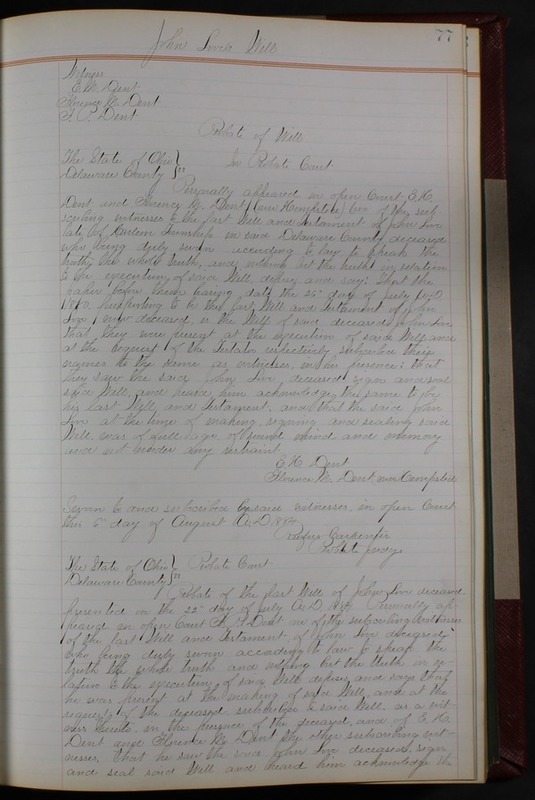 77
John Live's Will
Witness
E. H. Dent
Florence M. Dent
F. P. Dent
Probate of Will
The State of Ohio } In Probate Court
Delaware County } ss
Personally appeared in open Court E. H.
Dent and Florence M. Dent (now Hempsted) two of the sub
scribing witnesses to the last Will and Testament of John Live
late of Harlem Township in said Delaware County, deceased
who being duly sworn according to law to speak the
truth, the whole truth, and nothing but the truth in relation
to the execution of said Will, depose and say: that the
paper before them, bearing date the 26" day of July A.D.
purporting to be the last Will and Testament of John
Live, now deceased, is the Will of said deceased, John Live
that they were present at the execution of said Will and
at the request of the Testator respectively, subscribed their
names to the same as witnesses, in his presence; that
they saw the said John Live, deceased sign and seal
said Will, and heard him acknowledge the same to be
his last Will and Testament, and that the said John
Live at the time of making, signing and sealing said
Will, was of full age, of sound mind and memory
and not under any restraint.
E. H. Dent
Florence M. Dent now Hempsted
Sworn to and subscribed by said witnesses, in open Court
this 6" day of August A.D.
Rufus Carpenter
Probate Judge
The State of Ohio } Probate Court
Delaware County } ss
Probate of the last Will of John Live deceased
presented on the 22" day of July A.D. Personally ap
peared in open Court F. P. Dent one of the subscribing witnesses
of the last Will and Testament of John Live deceased,
who being duly sworn according to law to speak the
truth the whole truth and nothing but the truth in re-
lation to the execution of said Will, depose and says that
he was present at the making of said Will, and at the
request of the deceased subscribed to said Will, as a wit-
ness thereto, in the presence of the deceased and of E. H.
Dent and Florence M. Dent the other subscribing wit-
nesses, that he saw the said John Live deceased, sign
and seal said Will and heard him acknowledge the